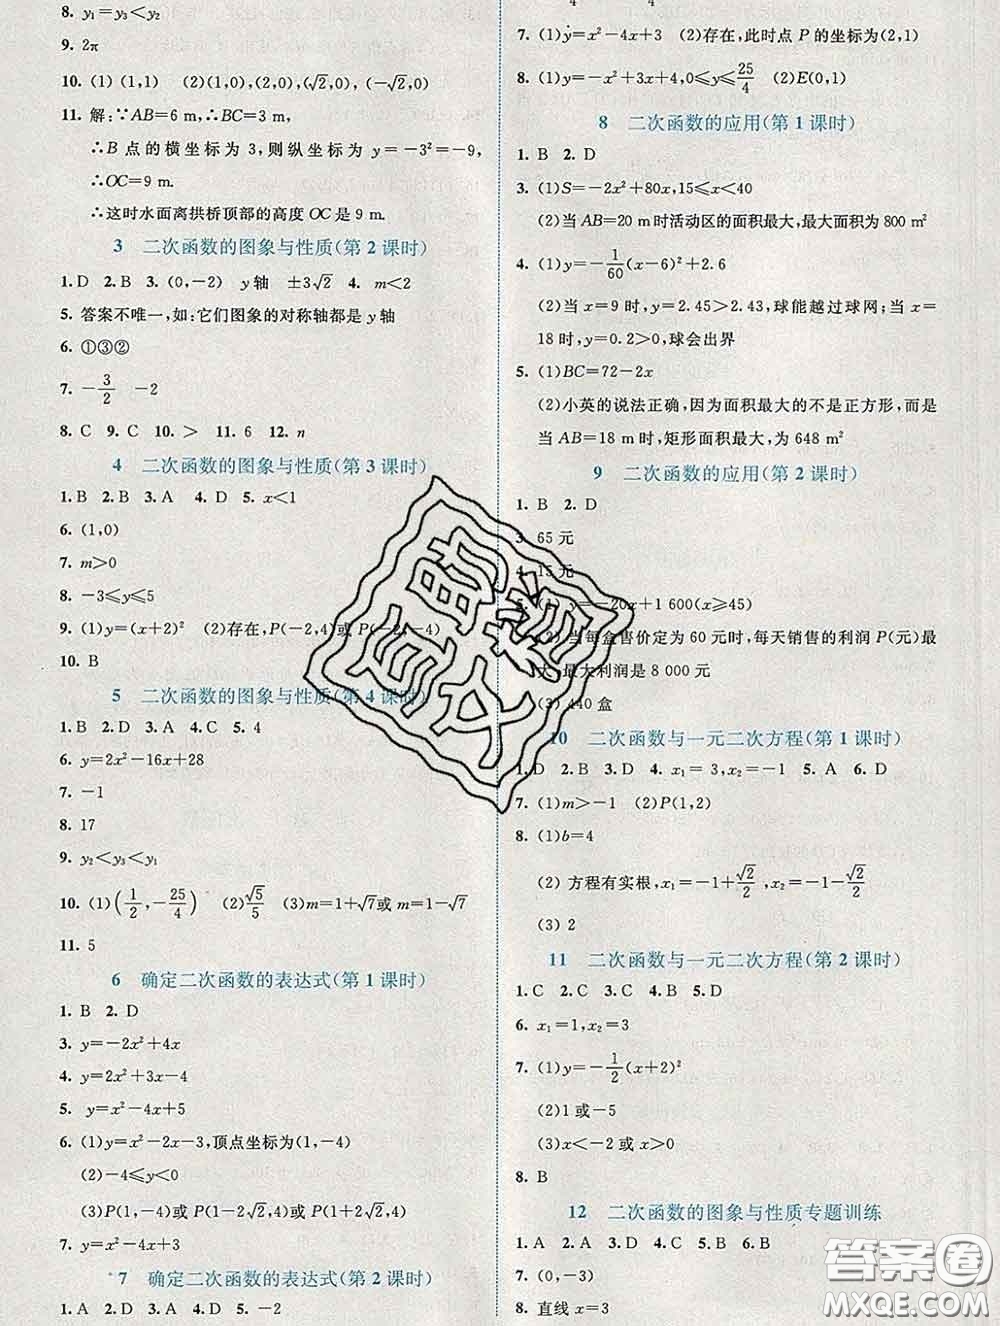 8. y₁=y₃<y₂
9. 2π
10. (1) (1,1) (2)(1,0),(2,0),(√2,0),(-√2,0)
11. 解:∵AB=6 m,∴BC=3 m,
∴B 点的横坐标为 3,则纵坐标为 y=-3²=-9,
∴OC=9 m.
∴这时水面离拱桥顶部的高度 OC 是 9 m.
3 二次函数的图象与性质(第 2 课时)
1. D 2. B 3. (0,-2) y 轴 ±3√2 4. m<2
5. 答案不唯一,如:它们图象的对称轴都是 y 轴
6. ①③②
7. -3/2 -2
8. C 9. C 10. > 11. 6 12. n
4 二次函数的图象与性质(第 3 课时)
1. B 2. B 3. A 4. D 5. x<1
6. (1,0)
7. m>0
8. -3≤y≤5
9. (1)y=(x+2)² (2)存在,P(-2,4)或 P(-2,-4)
10. B
5 二次函数的图象与性质(第 4 课时)
1. B 2. D 3. A 4. C 5. 4
6. y=2x²-16x+28
7. -1
8. 17
9. y₂<y₃<y₁
10. (1)(1/2,-25/4) (2)√5/5 (3)m=1+√7或 m=1-√7
11. 5
6 确定二次函数的表达式(第 1 课时)
1. B 2. D
3. y=-2x²+4x
4. y=2x²+3x-4
5. y=x²-4x+5
6. (1)y=x²-2x-3,顶点坐标为(1,-4)
(2)-4≤y<0
(3)P(1,-4)或 P(1-2√2,4)或 P(1+2√2,4)
7. y=x²-4x+3
7 确定二次函数的表达式(第 2 课时)
1. A 2. D 3. D 4. D 5. -2
7. (1)y=x²-4x+3 (2)存在,此时点 P 的坐标为(2,1)
8. (1)y=-x²+3x+4,0≤y≤25/4 (2)E(0,1)
8 二次函数的应用(第 1 课时)
1. B 2. D
3. (1)S=-2x²+80x,15≤x<40
(2)当 AB=20 m 时活动区的面积最大,最大面积为 800 m²
4. (1)y=-1/60(x-6)²+2.6
(2)当 x=9 时,y=2.45>2.43,球能越过球网;当 x=
18 时,y=0.2>0,球会出界
5. (1)BC=72-2x
(2)小英的说法正确,因为面积最大的不是正方形,而是
当 AB=18 m时,矩形面积最大,为 648 m²
9 二次函数的应用(第 2 课时)
1. B 2. D
3. 65 元
4. 15 元
5. (1) y=-20x+1 600(x≥45)
(2) 当每盒售价定为 60 元时,每天销售的利润 P(元)最
大,最大利润是 8 000 元
(3) 440 盒
10 二次函数与一元二次方程(第 1 课时)
1. D 2. B 3. D 4. x₁=3,x₂=-1 5. A 6. D
7. (1)m>-1 (2)P(1,2)
8. (1)b=4
(2) 方程有实根,x₁=-1+√2/2,x₂=-1-√2/2
(3) 2
11 二次函数与一元二次方程(第 2 课时)
1. C 2. C 3. C 4. B 5. D
6. x₁=1,x₂=3
7. (1)y=-1/2(x+2)²
(2)1 或-5
(3)x<-2 或 x>0
8. B
12 二次函数的图象与性质专题训练
1. A 2. A 3. C 4. C 5. B 6. B
7. (0,-3)
8. 直线 x=3
答案圈
MXQE.COM